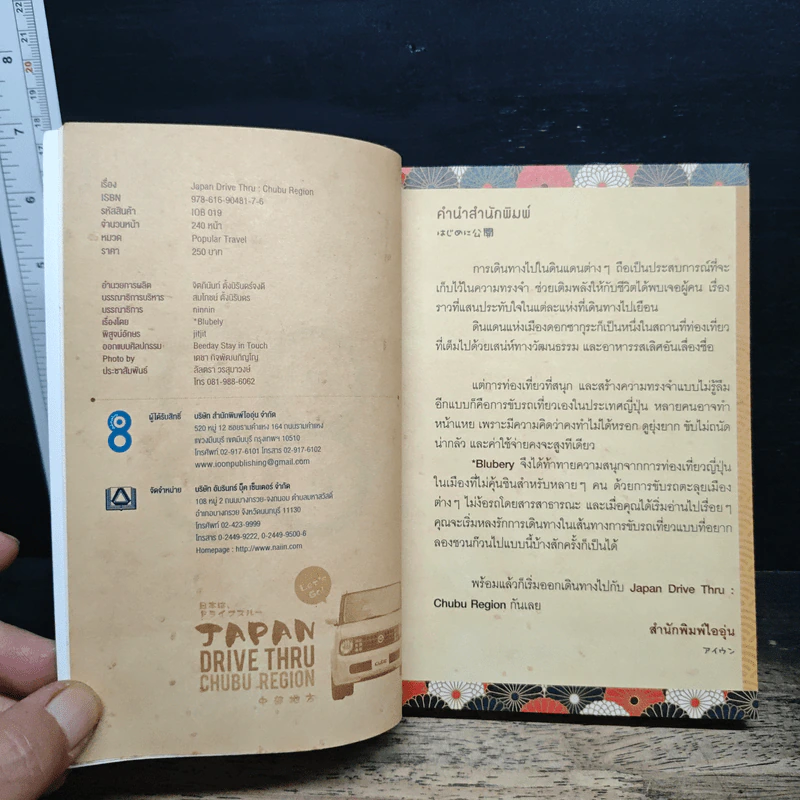 เรื่อง Japan Drive Thru : Chubu Region
ISBN 978-616-90481-7-6
รหัสสินค้า IOB 019
จำนวนหน้า 240 หน้า
หมวด Popular Travel
ราคา 250 บาท
อำนวยการผลิต จิตภินันท์ ตั้งนิรันดร์จงดี
บรรณาธิการบริหาร สมโภชน์ ตั้งนิรันดร
บรรณาธิการ ninnin
เรื่องโดย *Blubely
พิสูจน์อักษร jitjit
ออกแบบศิลปกรรม Beeday Stay in Touch
Photo by เดชา กิจพัฒนภิญโญ
ประชาสัมพันธ์ ลัลดรา วรสุมาวงษ์
โทร 081-988-6062
ผู้ได้รับสิทธิ์ บริษัท สำนักพิมพ์ไออุ่น จำกัด
520 หมู่ 12 ซอยรามคำแหง 164 ถนนรามคำแหง
แขวงมีนบุรี เขตมีนบุรี กรุงเทพฯ 10510
โทรศัพท์ 02-917-6101 โทรสาร 02-917-6102
www.ioonpublishing@gmail.com
จัดจำหน่าย บริษัท อัมรินทร์ บุ๊ค เซ็นเตอร์ จำกัด
108 หมู่ 2 ถนนบางกรวย-จงถนอม ตำบลมหาสวัสดิ์
อำเภอบางกรวย จังหวัดนนทบุรี 11130
โทรศัพท์ 02-423-9999
โทรสาร 0-2449-9222, 0-2449-9500-6
Homepage : http://www.naiin.com
Let's Go!
日本は、
ドライブスルー
JAPAN
DRIVE THRU
CHUBU REGION
中部地方
คำนำสำนักพิมพ์
はじめに公開
การเดินทางไปในดินแดนต่างๆ ถือเป็นประสบการณ์ที่จะ
เก็บไว้ในความทรงจำ ช่วยเติมพลังให้กับชีวิตได้พบเจอผู้คน เรื่อง
ราวที่แสนประทับใจในแต่ละแห่งที่เดินทางไปเยือน
ดินแดนแห่งเมืองดอกซากุระก็เป็นหนึ่งในสถานที่ท่องเที่ยว
ที่เต็มไปด้วยเสน่ห์ทางวัฒนธรรม และอาหารรสเลิศอันเลื่องชื่อ
แต่การท่องเที่ยวที่สนุก และสร้างความทรงจำแบบไม่รู้ลืม
อีกแบบก็คือการขับรถเที่ยวเองในประเทศญี่ปุ่น หลายคนอาจทำ
หน้าแหย เพราะมีความคิดว่าคงทำไม่ได้หรอก ดูยุ่งยาก ขับไม่ถนัด
น่ากลัว และค่าใช้จ่ายคงจะสูงทีเดียว
*Blubery จึงได้ท้าทายความสนุกจากการท่องเที่ยวญี่ปุ่น
ในเมืองที่ไม่คุ้นชินสำหรับหลายๆ คน ด้วยการขับรถตะลุยเมือง
ต่างๆ ไม่ง้อรถโดยสารสาธารณะ และเมื่อคุณได้เริ่มอ่านไปเรื่อยๆ
คุณจะเริ่มหลงรักการเดินทางในเส้นทางการขับรถเที่ยวแบบที่อยาก
ลองชวนก๊วนไปแบบนี้บ้างสักครั้งก็เป็นได้
พร้อมแล้วก็เริ่มออกเดินทางไปกับ Japan Drive Thru :
Chubu Region กันเลย
สำนักพิมพ์ไออุ่น
アイウン